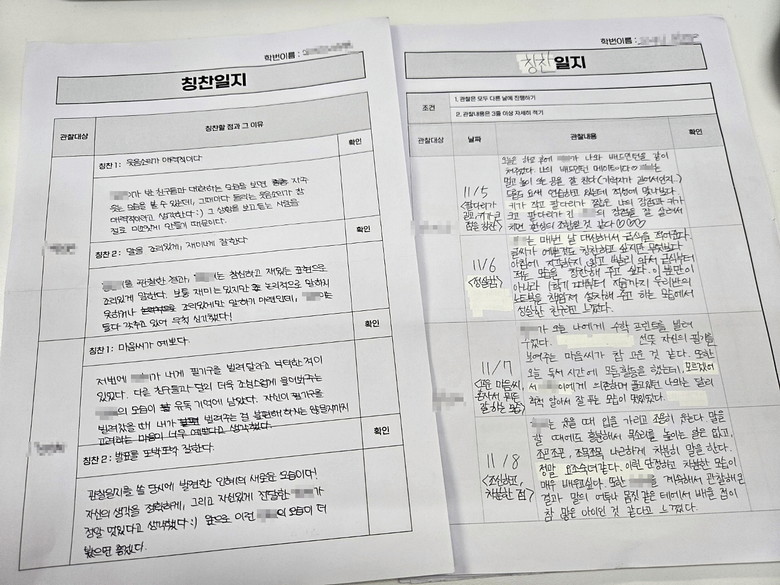 학번이름 :
칭찬일지
관찰대상
칭찬할 점과 그 이유
확인
칭찬 1 : 웃음소리가 매력적이다.
가 반 친구들과 대화하는 모습을 보면, 종종 지주
웃는 모습을 볼 수 있는데, 그때마다 들리는 웃음소리가 참
매력적이라고 생각했다 :) 그 상황을 보고듣는 사람을
절로 미소짓게 만들기 때문이다.
칭찬 2 : 말을 조리있게, 재미나게 잘한다.
확인
를 관찰한 결과, 는 참신하고 재밌는 표현으로
조리있게 말한다. 보통 재미는 있지만 논리적으로 말하지
못하거나 조리있게만 말하기 마련인데, 는
둘다 갖추고 있어 무척 신기했다!
칭찬 1 : 마음씨가 예쁘다.
확인
저번에 가 내게 필기구를 빌려달라고 부탁한 적이
있었다. 다른 친구들과 달리 더욱 조심스럽게 물어봐주는
의 모습이 유독 기억에 남았다. 자신이
빌려줬을 때 내가 빌려주는 점 불편해 하지는 않을지까지
고려하는 마음이 너무 예쁘다고 생각했다.
칭찬 2 : 발표를 또박또박 잘한다.
확인
관찰일지를 쓸 당시에 발견한 의 새로운 모습이다!
자신의 생각을 정확하게, 그리고 자신있게 전달한 가
정말 멋있다고 생각했다 :) 앞으로 이런 의 모습이 더
봤으면 좋겠다.
학번이름 :
칭찬일지
조건
1. 관찰은 모두 다른 날에 진행하기
2. 관찰내용은 3줄 이상 자세히 적기
관찰대상
날짜
관찰내용
확인
11/5
오늘 하루 에 가 나와 배드민턴을 같이
쳐주었다. 나의 배드민턴 메이트이다
멀고 높이 오는 공을 잘 친다
키가 작고 팔다리가 짧은 나의 장점과 키가
크고 팔다리가 긴 의 장점을 잘 살려서
치면 환상의 조합인 것 같다 ♡♡♡♡
11/6
<성실함>
는 매번 날 대신해서 급식을 적어준다.
글씨가 예쁜것도 칭찬하고 싶지만 무엇보다
아침에 지각하지 않고 빨리 와서 급식부터
적는 모습을 칭찬해 주고 싶다. 이뿐만이
아니라 1학기 때부터 지금까지 우리반의
노트북을 책임져 설치해 주고 하는 모습에서
성실한 친구라고 느꼈다.
11/7
<고운 마음씨,
혼자서 모두
잘 하는 모습>
가 오늘 나에게 수학 프린트를 빌려
주었다. 선뜻 자신의 필기를
보여주는 마음씨가 참 고운 것 같다. 또한
오늘 독서 시간에 모둠활동을 했는데, 모르겠어
서 이에게 의존하며 물어봤던 나와는 달리
척척 알아서 잘 푸는 모습이 멋있었다.
11/8
<조신하고,
차분한 점>
는 웃을 때 입을 가리고 조용히 웃는다. 말을
할 때에도 흥분해서 목소리를 높이는 일은 없고,
조곤조곤, 조목조목 나른하게 차분히 말을 한다.
정말 요조숙녀같다. 이런 단정하고 차분한 모습이
매우 배우고싶다. 또한 를 계속해서 관찰해온
결과 말이 어투나 몸짓 같은 데에서 배울 점이
참 많은 아이인 것 같다고 느꼈다.